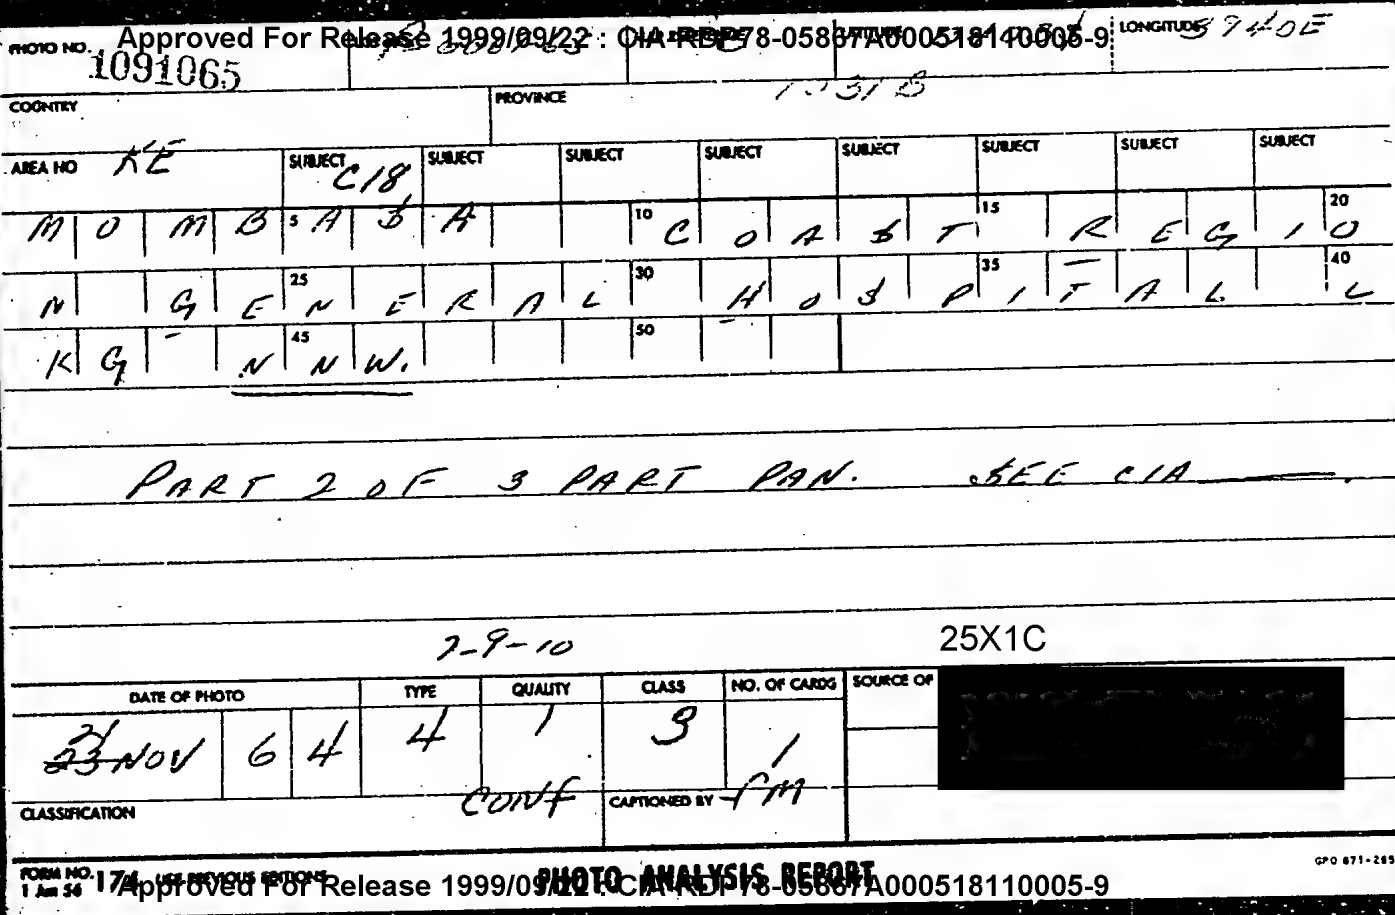 Approved For Release 1999/09/22 : CIA-RDP78-05867A000518110005-9
PHOTO NO. LONGITUDE 3940E
1091065
COUNTRY PROVINCE 1031B
AREA NO KE SUBJECT C18 SUBJECT SUBJECT SUBJECT SUBJECT SUBJECT SUBJECT SUBJECT
MOMBASA 5 10 COAST 15 REGIO 20
N GENERAL 25 30 HOSPITAL 35 L 40
KG NNW. 45 50
PART 2 OF 3 PART PAN. SEE CIA
7-9-10 25X1C
DATE OF PHOTO TYPE QUALITY CLASS NO. OF CARDS SOURCE OF
NOV 64 4 1 3 1
CLASSIFICATION CONF CAPTIONED BY
FORM NO. 174 USE PREVIOUS EDITIONS PHOTO ANALYSIS REPORT GPO
1 Jun 56
Approved For Release 1999/09/22 : CIA-RDP78-05867A000518110005-9